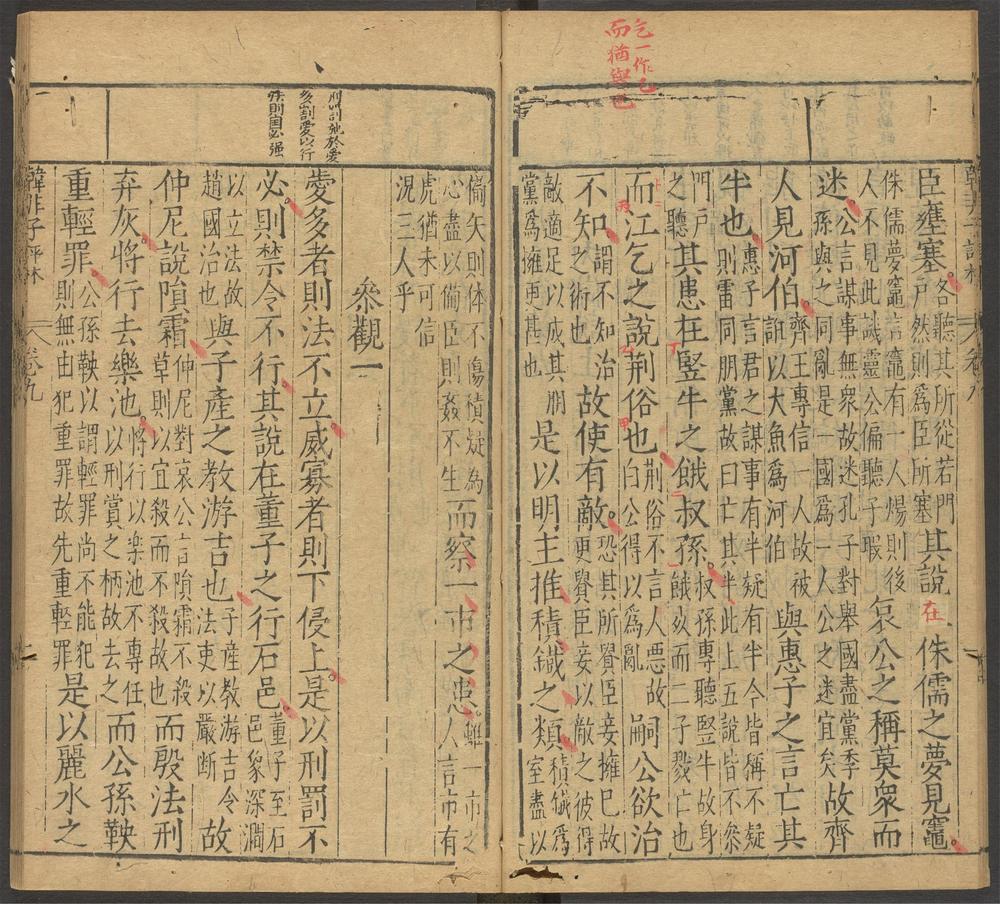 乞一作乙
而猶與也
臣壅塞各聽其所從若門戶然則爲臣所塞其說在侏儒之夢見竈
侏儒夢竈言竈有一人煬則後人不見此譏靈公偏聽子瑕哀公之稱莫衆而
迷公言謀事無衆故迷孔子對舉國盡黨季孫與之同亂是一國爲一人公之迷宜矣故齊
人見河伯齊王專信一人故被誑以大魚爲河伯與惠子之言亡其
半也惠子言君之謀事有半疑有半今皆稱不疑則雷同朋黨故曰亡其半此上五說皆不叅
門戶之聽其患在竪牛之餓叔孫叔孫專聽竪牛故身餓㱾而二子戮亡也
而江乞之說荆俗也荆俗不言人惡故白公得以爲亂嗣公欲治
不知謂不知治之術也故使有敵恐其所貴臣妾擁已故更貴臣妾以敵之彼得
敵適足以成其朋黨爲擁更甚也是以明主推積鐵之類積鐵爲室盡以
備矢則体不傷積疑為心盡以備臣則姦不生而察一市之患雖一市之人言市有
虎猶未可信况三人乎
叅觀一
愛多者則法不立威寡者則下侵上是以刑罰不
必則禁令不行其說在董子之行石邑董子至石邑象深澗
以立法故趙國治也與子產之教游吉也子産教游吉令法吏以嚴断故
仲尼說隕霜仲尼對哀公言隕霜不殺草則以宜殺而不殺故也而殷法刑
弃灰將行去樂池將行以樂池不專任以刑賞之柄故去之而公孫鞅
重輕罪公孫鞅以謂輕罪尚不能犯則無由犯重罪故先重輕罪是以麗水之
多割愛以行
則国必强